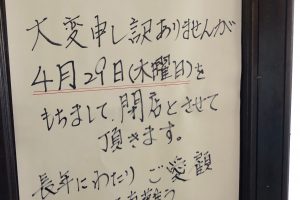 大変申し訳ありませんが
4月29日(木曜日)を
もちまして、閉店とさせて
頂きます。
長年にわたり ご愛顧